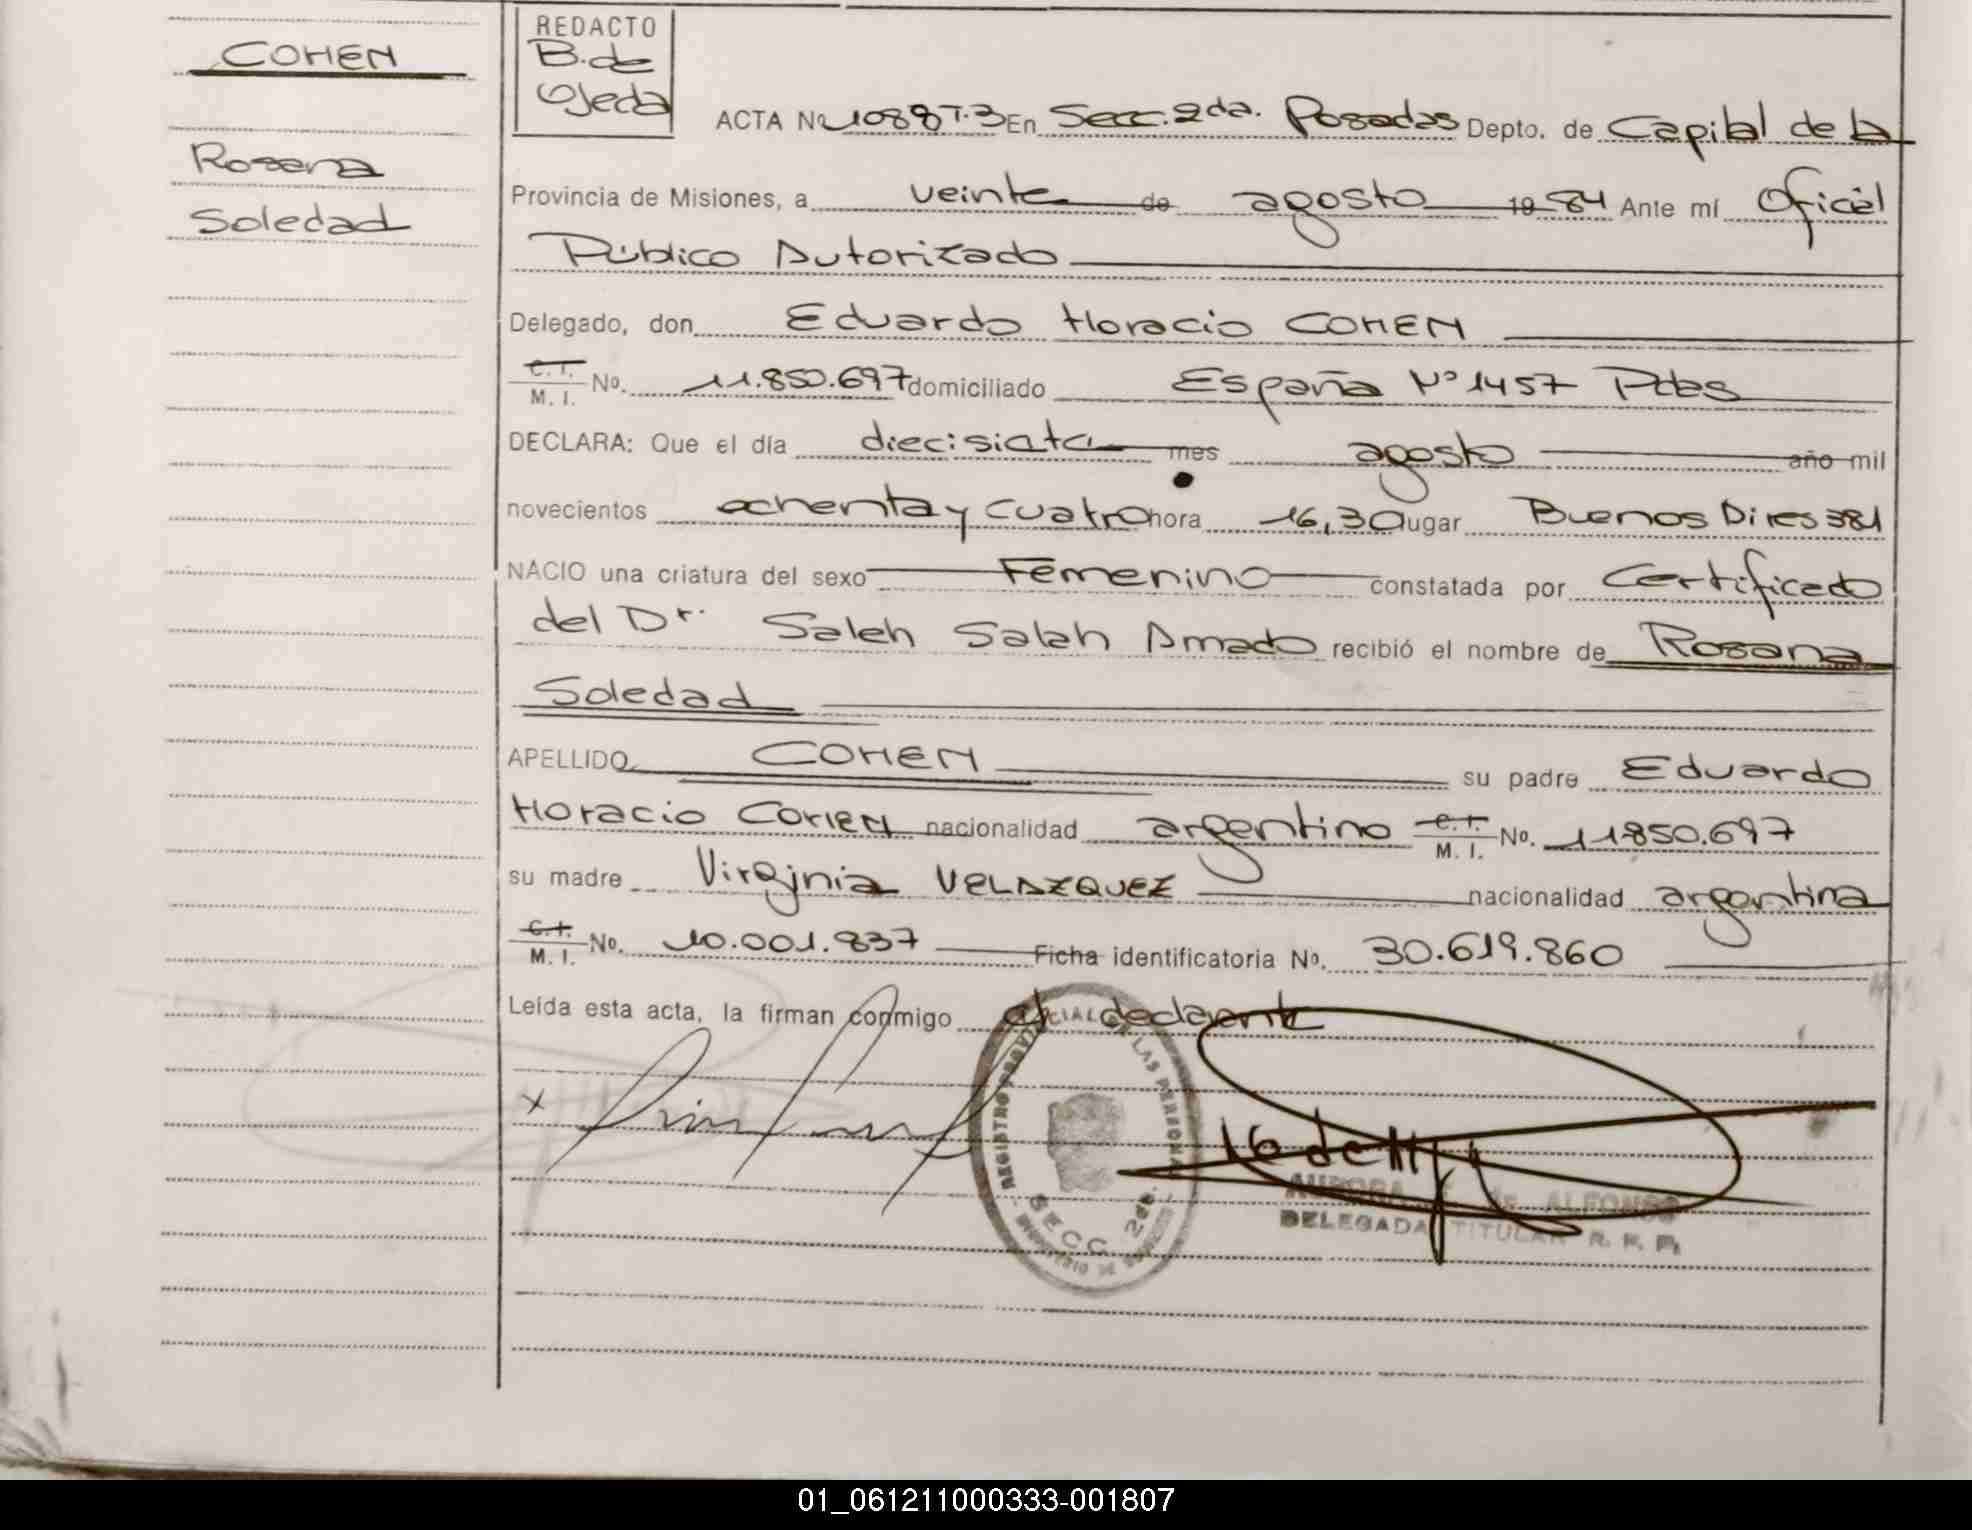 COHEN
Rosana
Soledad
REDACTO
B. de
Ojeda
ACTA Nº 1088 T.3 En Secc. 2da. Posadas Depto. de Capital de la
Provincia de Misiones, a veinte de agosto 19 84 Ante mí Oficial
Público Autorizado
Delegado, don Eduardo Horacio COHEN
C. I. M. I. No. 11.850.697 domiciliado España Nº 1457 Pdas
DECLARA: Que el día diecisiete mes agosto año mil
novecientos ochenta y cuatro hora 16,30 lugar Buenos Aires 381
NACIO una criatura del sexo Femenino constatada por Certificado
del Dr. Saleh Salah Amado recibió el nombre de Rosana
Soledad
APELLIDO COHEN su padre Eduardo
Horacio COHEN nacionalidad argentino C. I. M. I. No. 11850.697
su madre Virginia VELAZQUEZ nacionalidad argentina
C. I. M. I. No. 10.001.837 Ficha identificatoria No. 30.619.860
Leída esta acta, la firman conmigo el declarante
x
REGISTRO PROVINCIAL DE LAS PERSONAS
SECC. 2da.
AURORA de ALFONSO
DELEGADA TITULAR R. P. P.
01_061211000333-001807